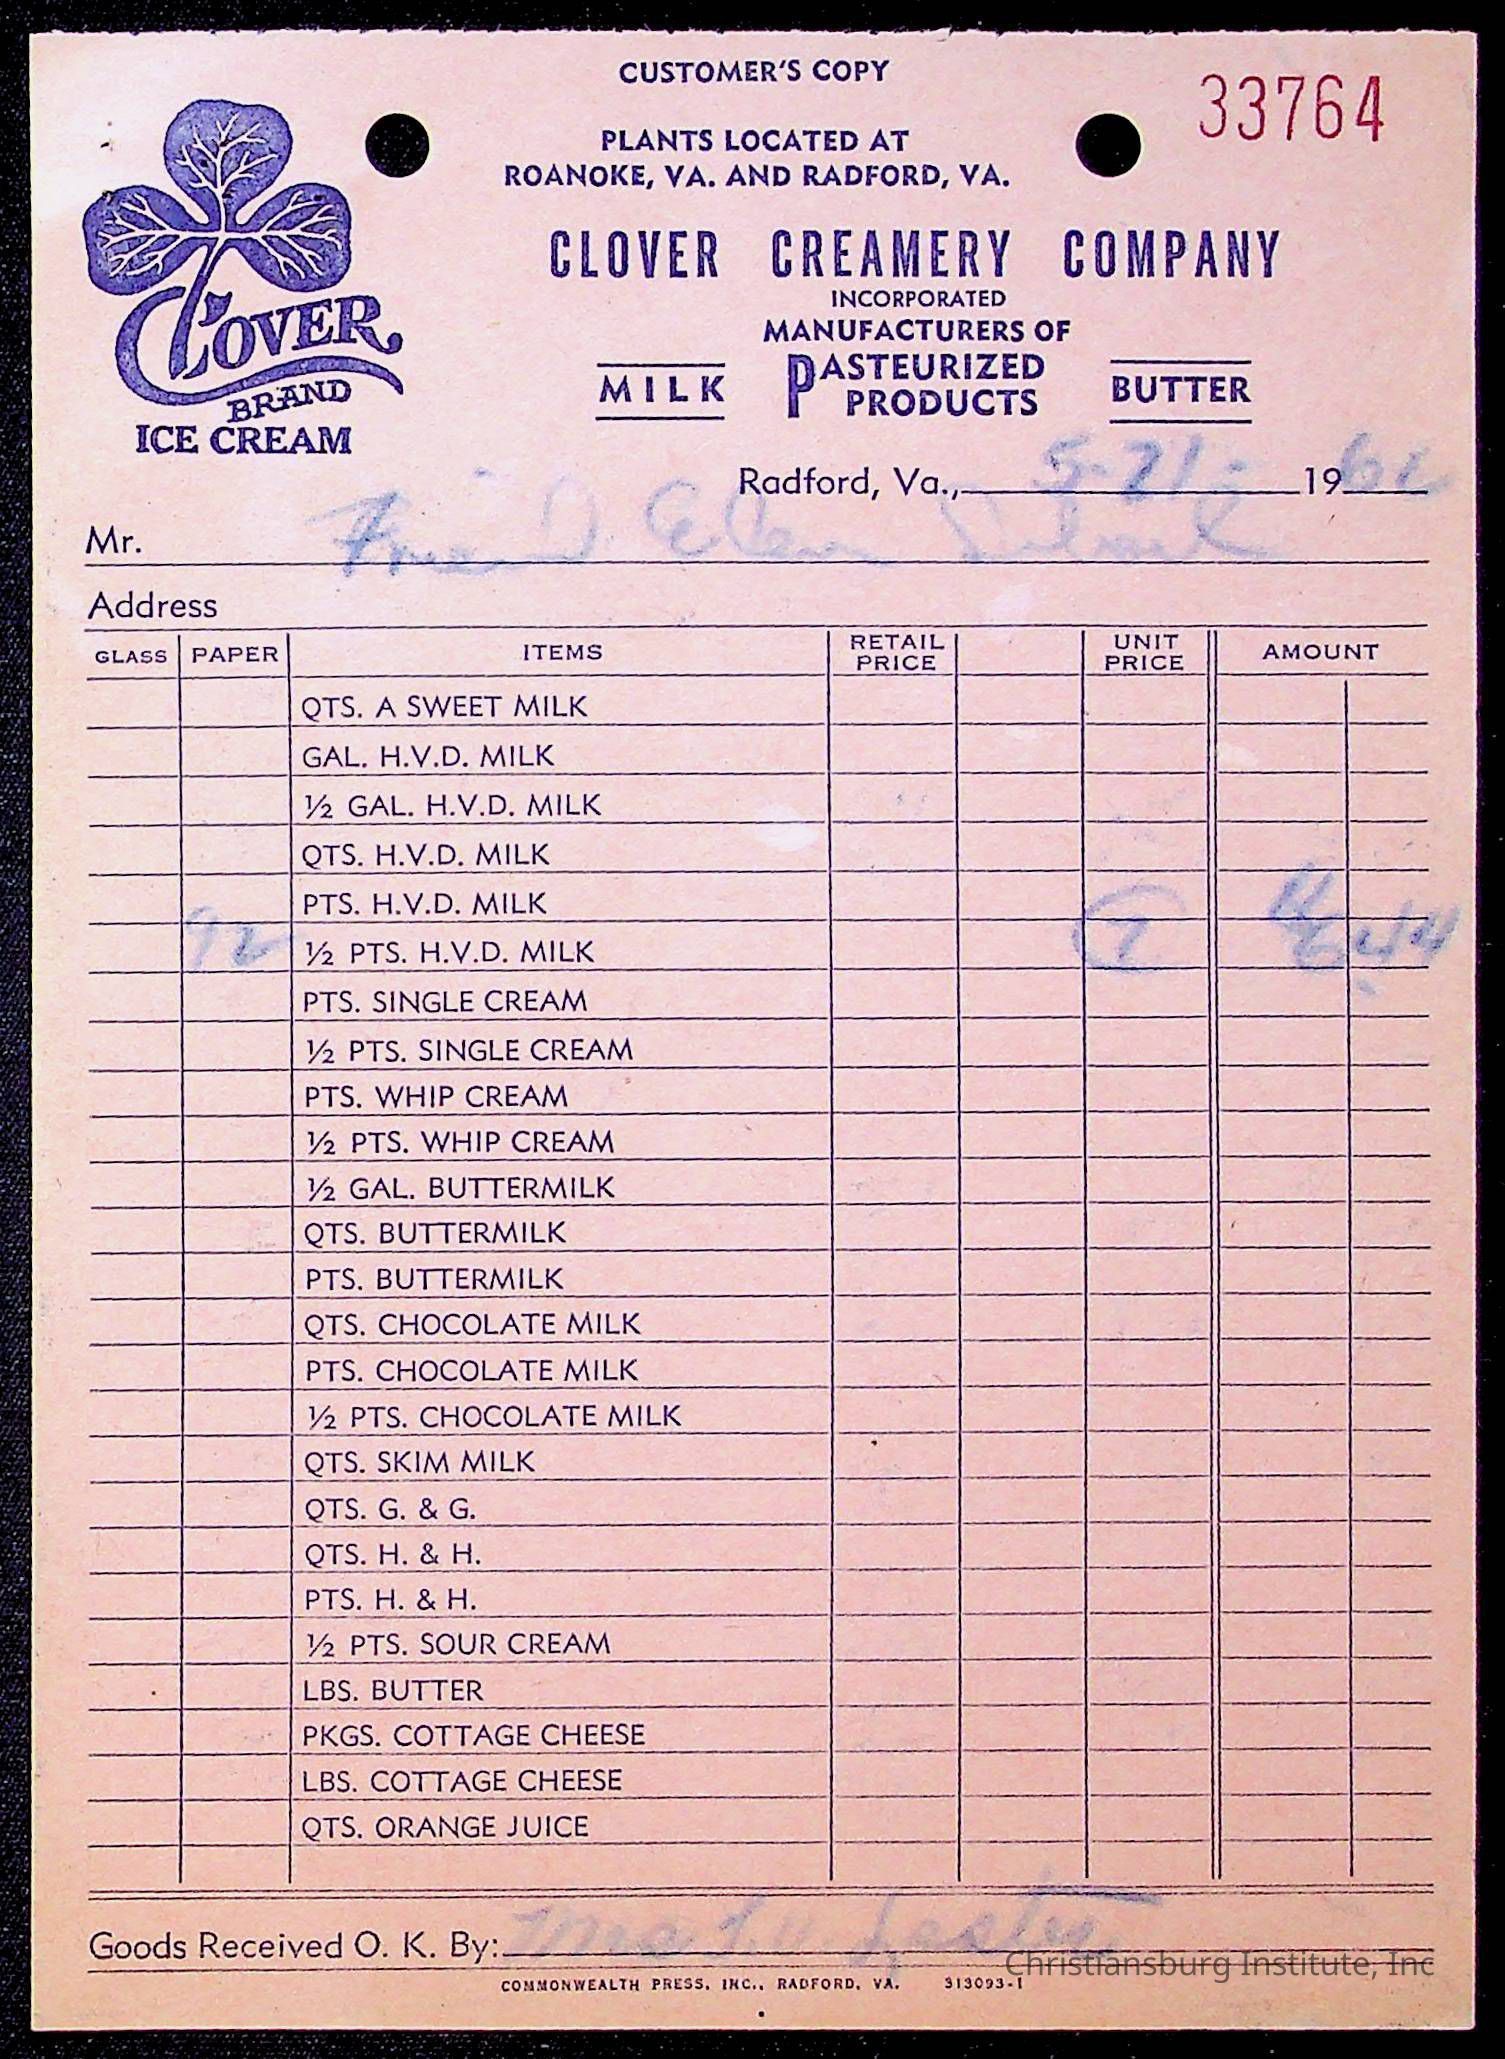 CUSTOMER'S COPY
33764
PLANTS LOCATED AT
ROANOKE, VA. AND RADFORD, VA.
CLOVER CREAMERY COMPANY
INCORPORATED
MANUFACTURERS OF
MILK PASTEURIZED PRODUCTS BUTTER
CLOVER
BRAND
ICE CREAM
Radford, Va., 5-21- 19
Mr. Friend Elem School
Address
GLASS PAPER ITEMS RETAIL PRICE UNIT PRICE AMOUNT
QTS. A SWEET MILK
GAL. H.V.D. MILK
½ GAL. H.V.D. MILK
QTS. H.V.D. MILK
PTS. H.V.D. MILK
92 ½ PTS. H.V.D. MILK 7 6 44
PTS. SINGLE CREAM
½ PTS. SINGLE CREAM
PTS. WHIP CREAM
½ PTS. WHIP CREAM
½ GAL. BUTTERMILK
QTS. BUTTERMILK
PTS. BUTTERMILK
QTS. CHOCOLATE MILK
PTS. CHOCOLATE MILK
½ PTS. CHOCOLATE MILK
QTS. SKIM MILK
QTS. G. & G.
QTS. H. & H.
PTS. H. & H.
½ PTS. SOUR CREAM
LBS. BUTTER
PKGS. COTTAGE CHEESE
LBS. COTTAGE CHEESE
QTS. ORANGE JUICE
Goods Received O. K. By: Mrs L.H. Lester
Christiansburg Institute, Inc
COMMONWEALTH PRESS, INC., RADFORD, VA. 313093-1